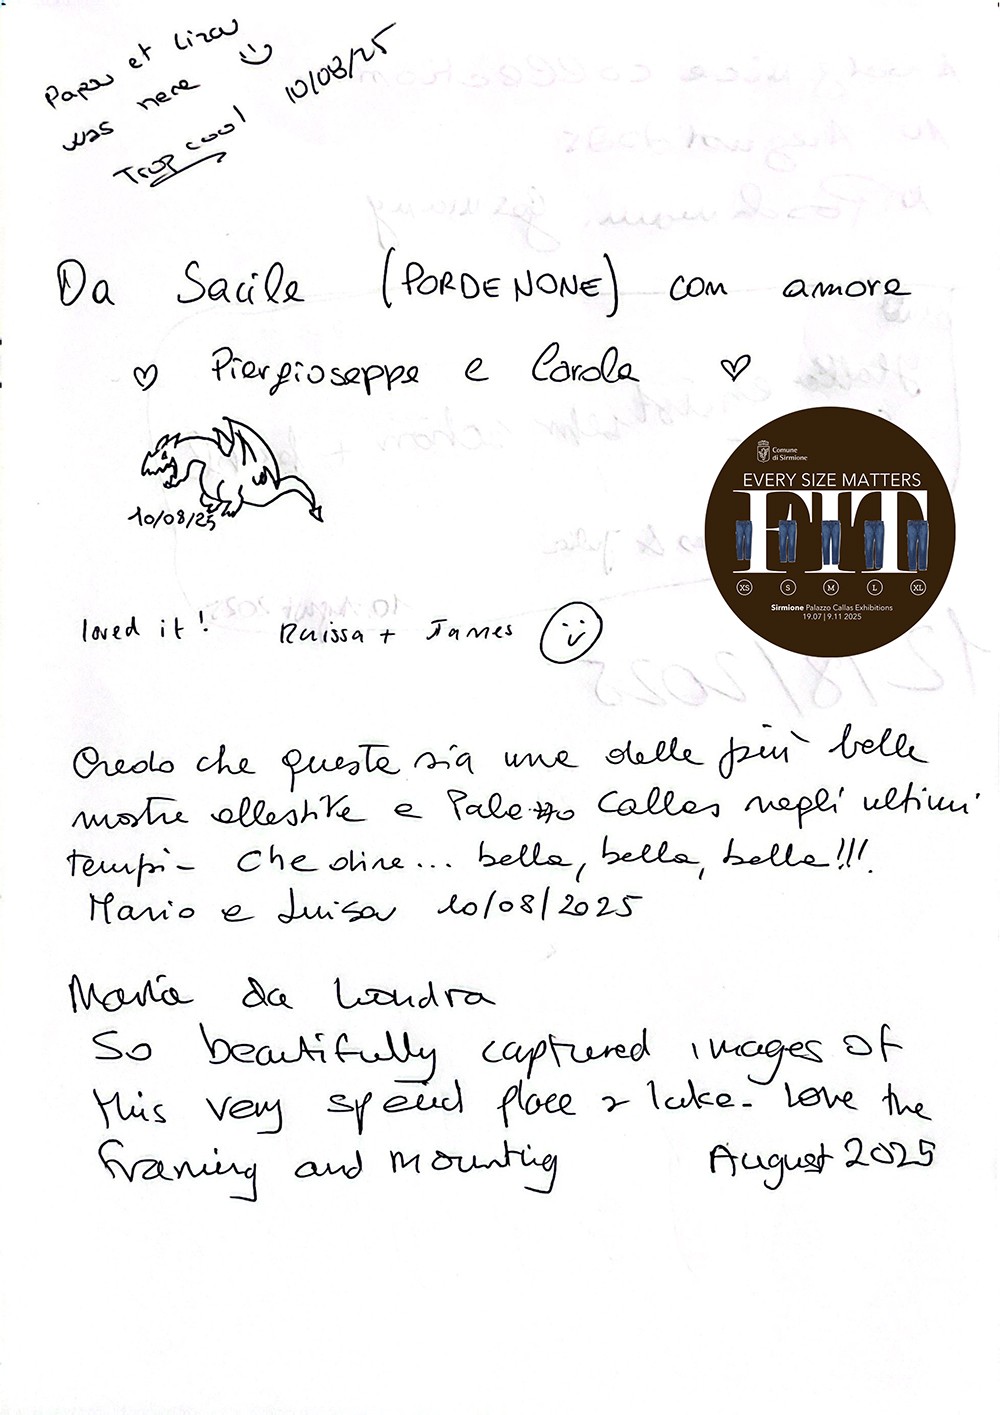 Papa et Liza
was here
Trop cool
10/08/25
Da Sacile (PORDENONE) con amore
Piergioseppe e Carola
10/08/25
Comune
di Sirmione
EVERY SIZE MATTERS
FIT
XS S M L XL
Sirmione Palazzo Callas Exhibitions
19.07 | 9.11 2025
loved it! Raissa + James
Credo che queste sia una delle più belle
mostre allestite a Palazzo Callas negli ultimi
tempi - Che dire... bella, bella, bella!!!
Mario e Luisa 10/08/2025
Maria da Londra
So beautifully captured images of
this very special place & lake - Love the
framing and mounting August 2025
12/8/2025